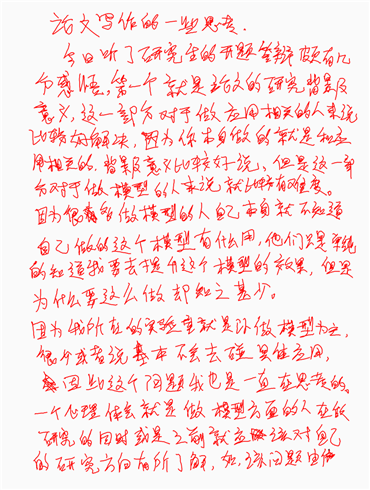 论文写作的一些思考.
今日听了研究生的开题答辩颇有几
分感悟,第一个就是论文的研究背景及
意义,这一部分对于做应用相关的人来说
比较好解决,因为你本身做的就是和应
用相关的.背景及意义比较好说,但是这一部
分对于做模型的人来说就比较有难度.
因为很多做模型的人自己本身就不知道
自己做的这个模型有什么用,他们只是单纯
的知道我要去提升这个模型的效果,但是
为什么要这么做却知之甚少.
因为我所在的实验室就是以做模型为主,
很少或者说基本不会去碰具体应用,
因此这个问题我也是一直在思考的.
一个心理体会就是做模型方面的人在做
研究的同时或是之前就应该对自己
的研究方向有所了解,如.该问题由何